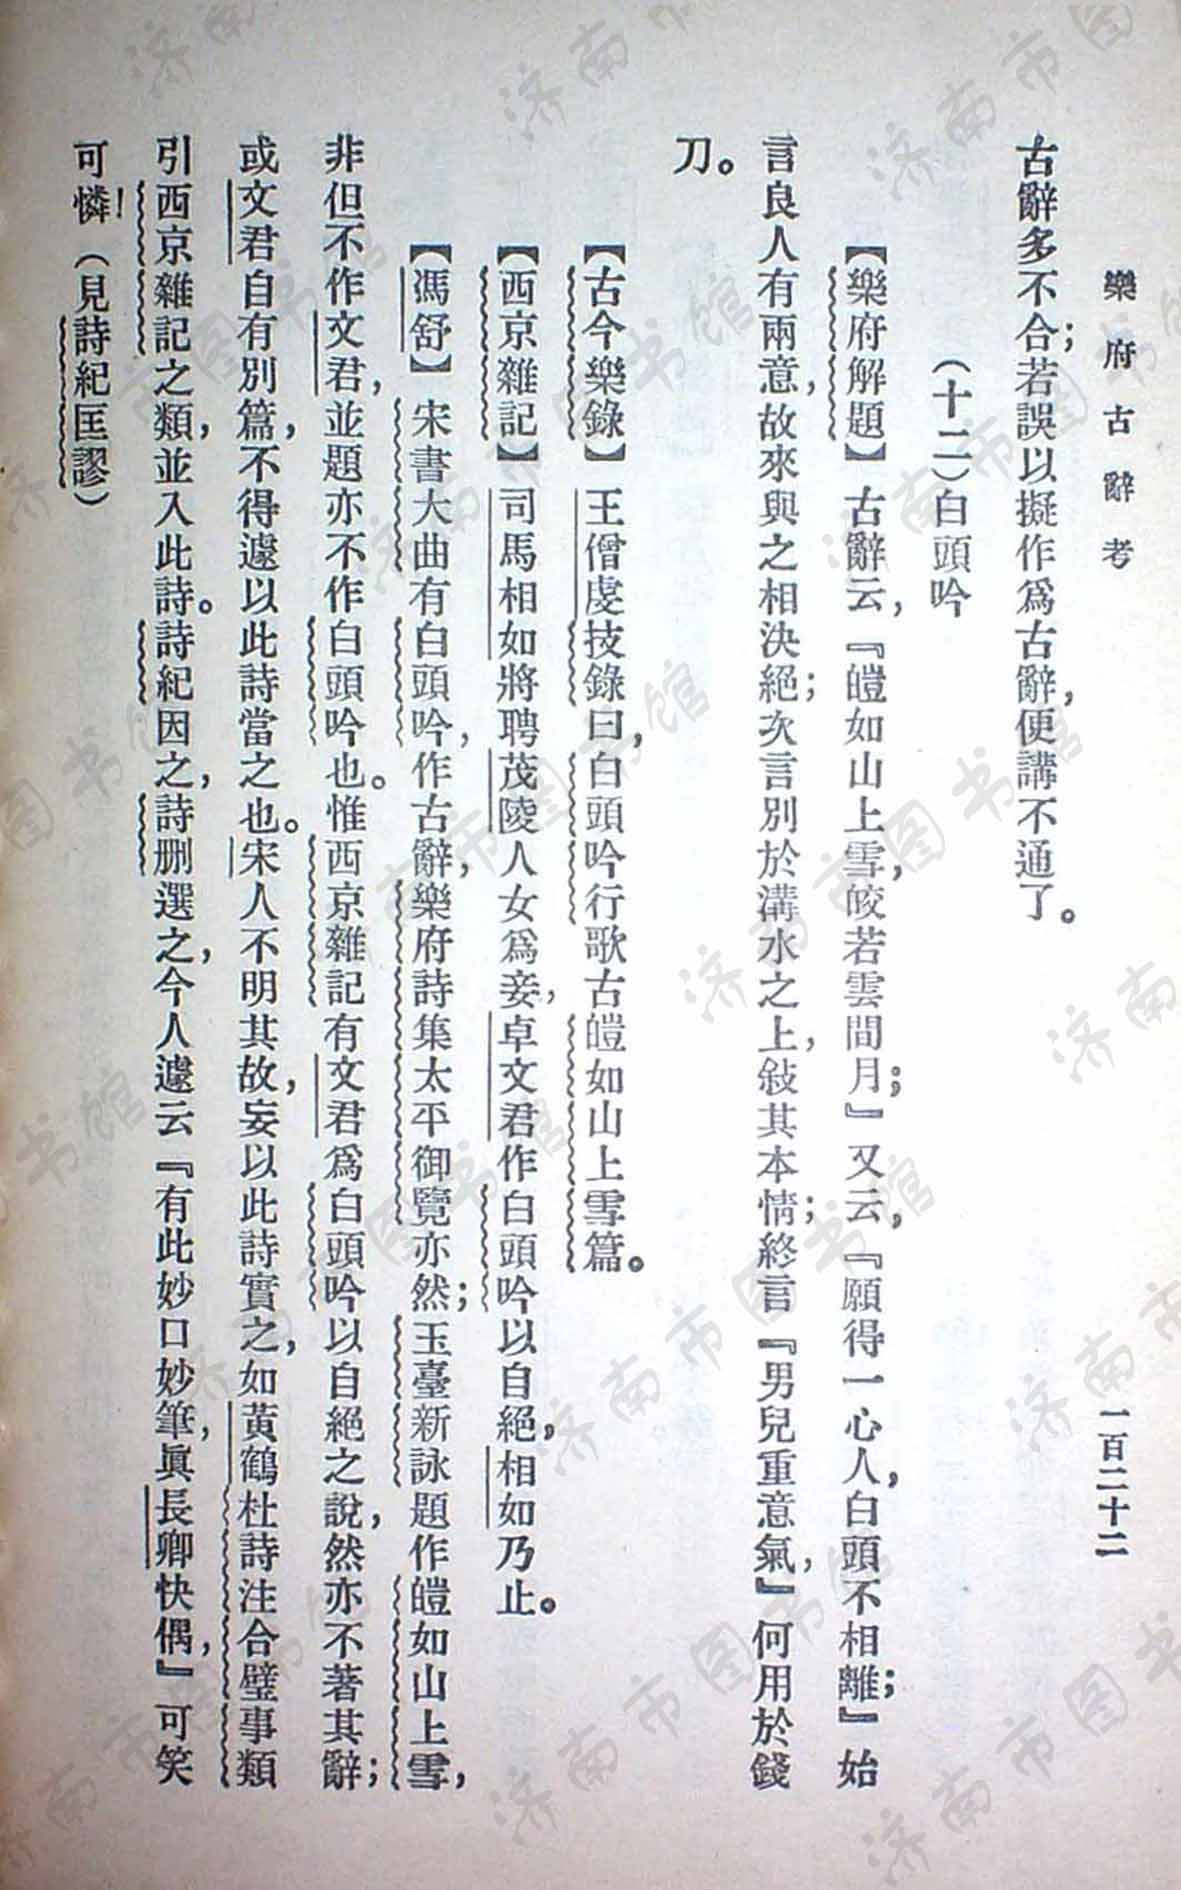 樂府古辭考
一百二十二
古辭多不合；若誤以擬作爲古辭，便講不通了。
（十二）白頭吟
【樂府解題】古辭云，『皚如山上雪，皎若雲間月；』又云，『願得一心人，白頭不相離；』始
言良人有兩意，故來與之相決絕；次言別於溝水之上，敍其本情；終言『男兒重意氣，』何用於錢
刀。
【古今樂錄】王僧虔技錄曰，白頭吟行歌古皚如山上雪篇。
【西京雜記】司馬相如將聘茂陵人女爲妾，卓文君作白頭吟以自絕，相如乃止。
【馮舒】宋書大曲有白頭吟，作古辭，樂府詩集太平御覽亦然；玉臺新詠題作皚如山上雪，
非但不作文君，並題亦不作白頭吟也。惟西京雜記有文君爲白頭吟以自絕之說，然亦不著其辭；
或文君自有別篇，不得遽以此詩當之也。宋人不明其故，妄以此詩實之，如黃鶴杜詩注合璧事類
引西京雜記之類，並入此詩。詩紀因之，詩刪選之，今人遽云『有此妙口妙筆，眞長卿快偶，』可笑
可憐！（見詩紀匡謬）
济南市图书馆